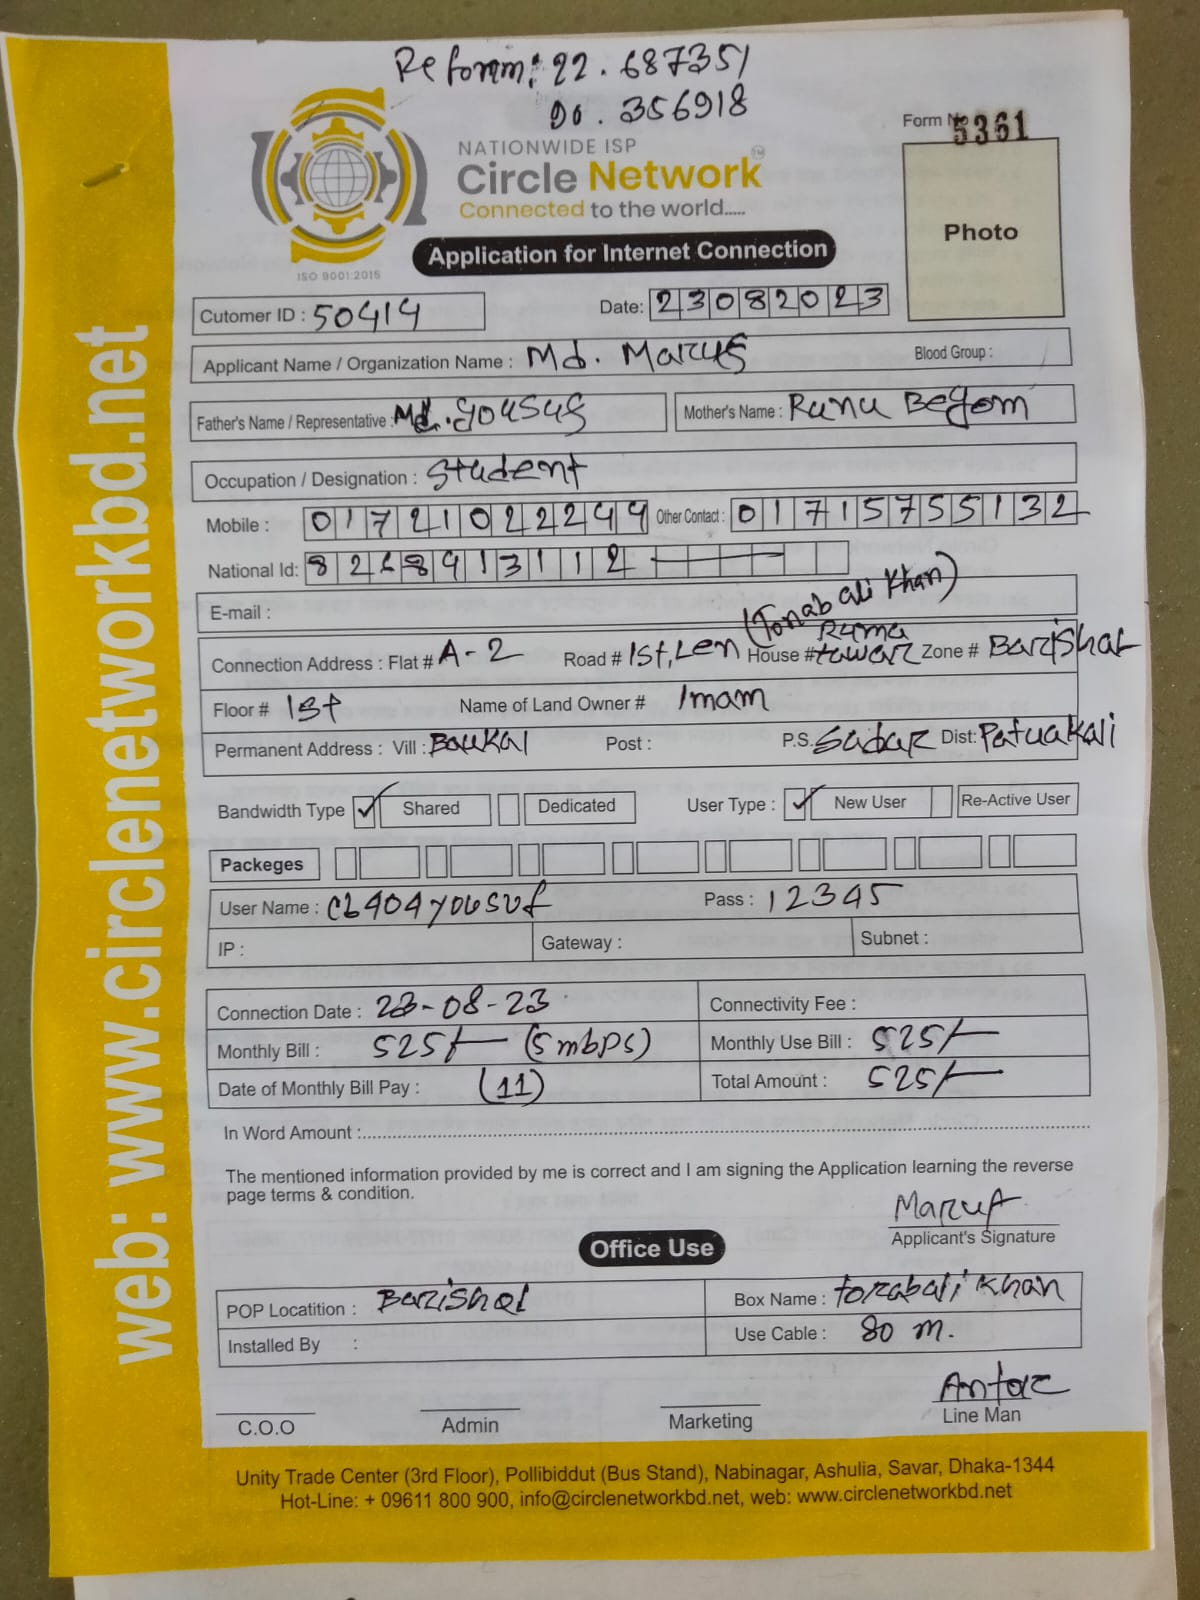 Reform: 22.687351
90.356918
Form No 5361
NATIONWIDE ISP
Circle Network TM
Connected to the world.....
ISO 9001:2015
Application for Internet Connection
Photo
Cutomer ID : 50414 Date: 23082023
Applicant Name / Organization Name : Md. Maruf Blood Group :
Father's Name / Representative : Md. yousuf Mother's Name : Runu Begom
Occupation / Designation : Student
Mobile : 01721022249 Other Contact : 01715755132
National Id: 8268913112
E-mail :
(Torab ali Khan)
Connection Address : Flat # A-2 Road # 1st, Len House # Ruma towar Zone # Barishal
Floor # 1st Name of Land Owner # Imam
Permanent Address : Vill : Boukal Post : P.S. Sadar Dist: Patuakali
Bandwidth Type ✓ Shared Dedicated User Type : ✓ New User Re-Active User
Packeges
User Name : cb404yousuf Pass : 12345
IP : Gateway : Subnet :
Connection Date : 23-08-23 Connectivity Fee :
Monthly Bill : 525/- (5 mbps) Monthly Use Bill : 525/-
Date of Monthly Bill Pay : (11) Total Amount : 525/-
In Word Amount :
The mentioned information provided by me is correct and I am signing the Application learning the reverse
page terms & condition.
Maruf
Applicant's Signature
Office Use
POP Locatition : Barishal Box Name : torabali Khan
Installed By : Use Cable : 80 m.
Antor
C.O.O Admin Marketing Line Man
Unity Trade Center (3rd Floor), Pollibiddut (Bus Stand), Nabinagar, Ashulia, Savar, Dhaka-1344
Hot-Line: + 09611 800 900, info@circlenetworkbd.net, web: www.circlenetworkbd.net
web: www.circlenetworkbd.net